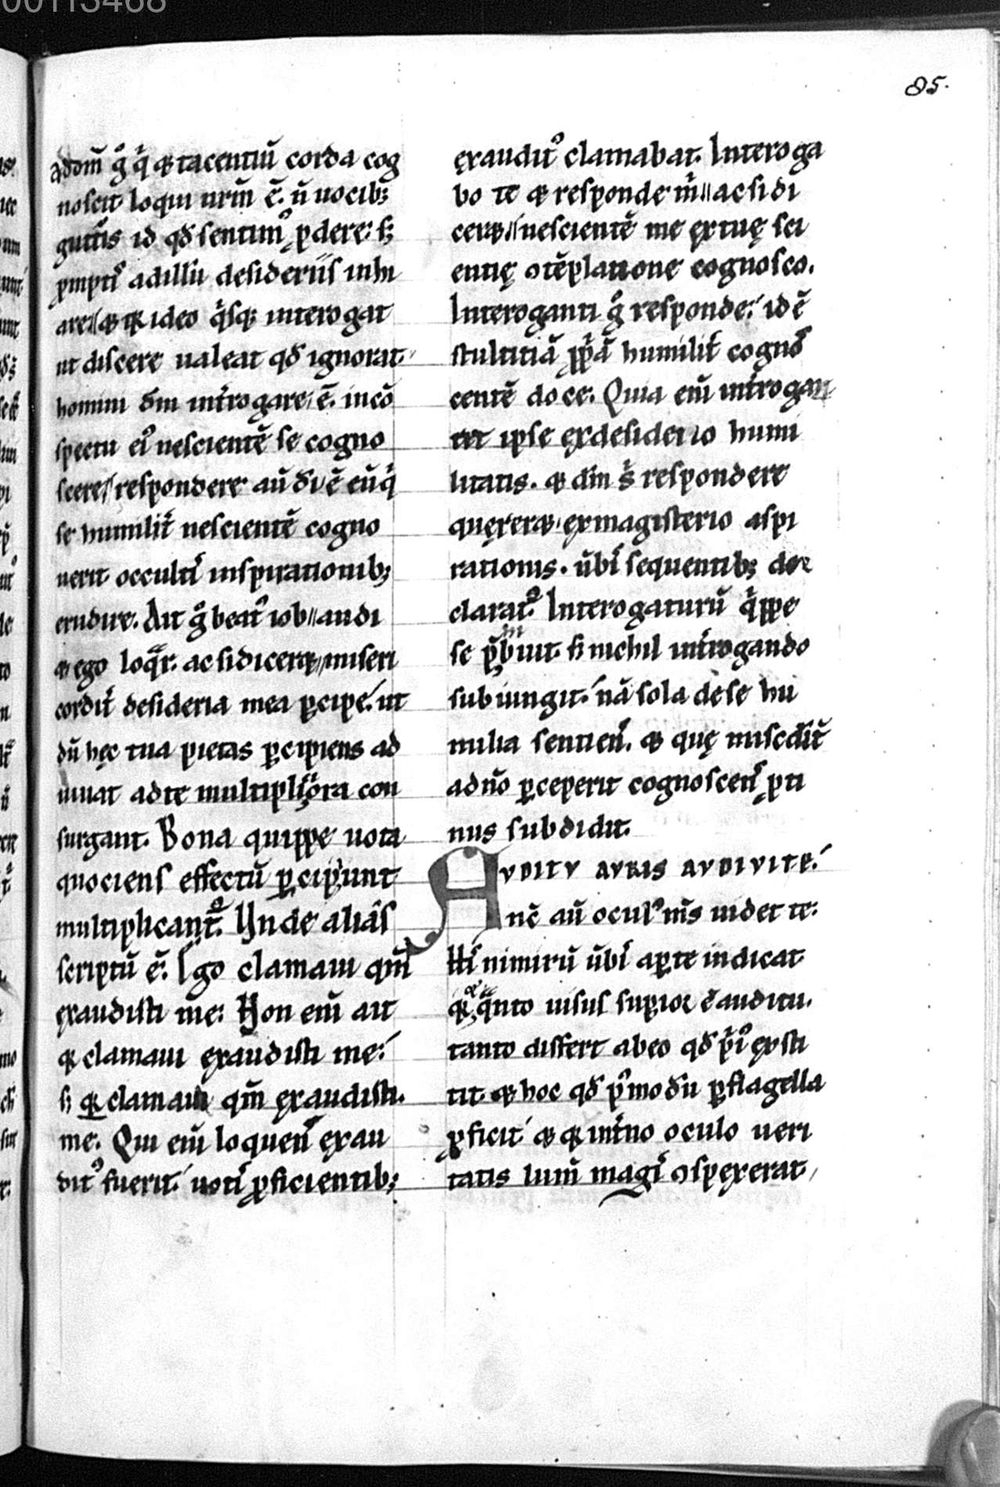 00113468
85.
addm̄ g̊ q̇ & tacentiū corda cog
noscit loqui nrm̄ ē. n̄ uocib;
gutturis id qd̄ sentim᷒ ꝓdere: s;
ꝓmpti᷒ ad illū desideriis inhi
are // & ideo q̇sq; interogat
ut discere ualeat qd̄ ignorat.
homini dm̄ int̄rogare ē. incō
spectu ei᷒ nescientē se cogno
scere // respondere aū dī ē eū q̇
se humilit̄ nescientē cogno
uerit occultis inspirationib;
erudire. Ait g̊ beat᷒ iob // audi
& ego loq̄r. ac si dicer& // miseri
cordit̄ desideria mea ꝑcipe. ut
dū hęc tua pietas ꝑcipiens ad
iuuat ad te multiplic̄iora con
surgant. Bona quippe uota
quociens effectū ꝑcipiunt
multiplicant᷒. Unde aliās
scriptū ē. Ego clamaui qm̄
exaudisti me: Non eni̅ ait
q̄ clamaui exaudisti me:
s; q̄ clamaui qm̄ exaudisti.
me. Qui eni̅ loquens exau
dit᷒ fuerit uotis ꝓficientib;
exaudit᷒ clamabat. Interoga
bo te & responde m̄ // ac si di
cer& // nescientē me ex tuę sci
entię ↄtēplatione cognosco.
Interoganti g̊ responde: id ē
stultitiā ꝓp̄ā humilit̄ cognos
centē doce. Quia eni̅ int̄rogan
ter ipse ex desiderio humi
litatis. & dm̄ s; respondere
quęrer& ex magisterio aspi
rationis. ūbis sequentib; de
clarat᷒. Interogaturū q̇ppe
se p̄buit. s; nichil int̄rogando
subiungit. nā sola de se hu
milia sentiens. & quę misedit̄
ad nō ꝑceperit cognoscens ꝓti
nus subdidit.
AVDITV AVRIS AVDIVI TE:
nc̄ aū ocul᷒ m̄s uidet te:
His nimirū ūbis aꝑte indicat
q̄ q̄nto uisus suꝑior ē auditu.
tanto differt ab eo qd̄ p̄i᷒ exsti
tit & hoc qd̄ p᷒modū ꝑ flagella
ꝓficit & q̄ int̄no oculo ueri
tatis lum̄ magis ↄspexerat,